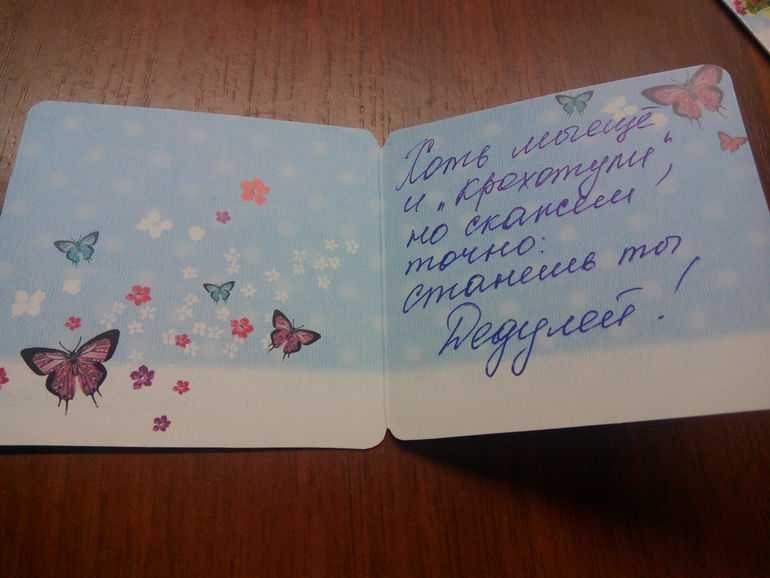 Хоть мы ещё
и „крохотули",
но скажем
точно:
станешь ты
Дедулей!